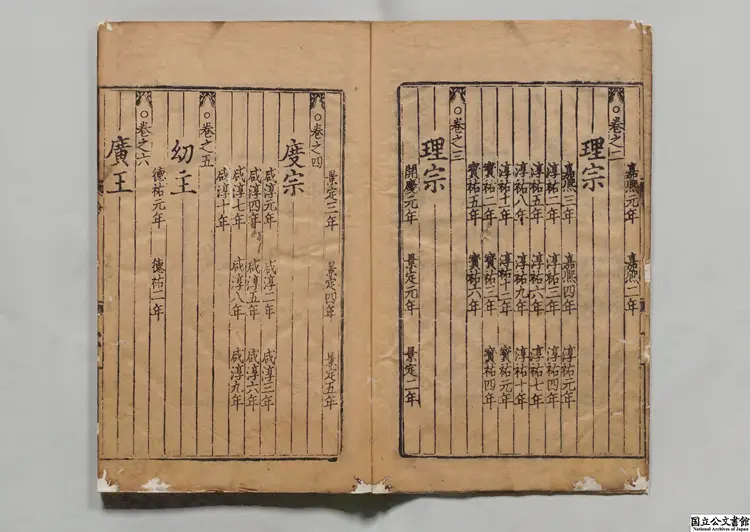 嘉熙元年 嘉熙二年
○卷之二
理宗
嘉熙三年 嘉熙四年 淳祐元年
淳祐二年 淳祐三年 淳祐四年
淳祐五年 淳祐六年 淳祐七年
淳祐八年 淳祐九年 淳祐十年
淳祐十一年 淳祐十二年 寳祐元年
寳祐二年 寳祐三年 寳祐四年
寳祐五年 寳祐六年
○卷之三
理宗
開慶元年 景定元年 景定二年
景定三年 景定四年 景定五年
○卷之四
度宗
咸淳元年 咸淳二年 咸淳三年
咸淳四年 咸淳五年 咸淳六年
咸淳七年 咸淳八年 咸淳九年
咸淳十年
○卷之五
幼主
德祐元年 德祐二年
○卷之六
廣王
国立公文書館
National Archives of Japan